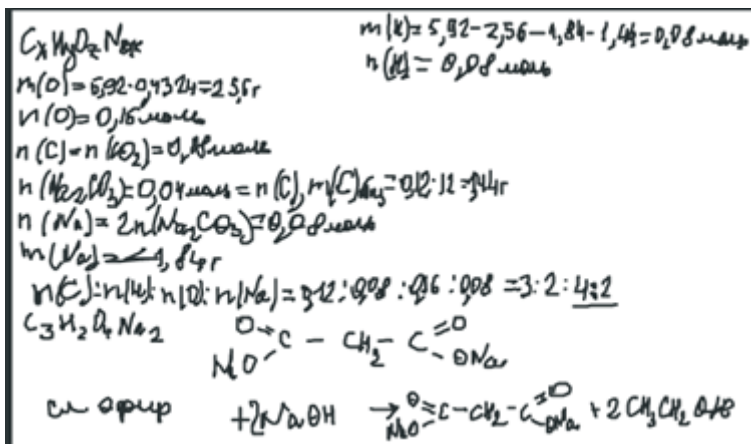 CxHyOzNaк
m(O)=5,92·0,4324=2,56г
n(O)=0,16моль
n(C)=n(CO₂)=0,08моль
n(Na₂CO₃)=0,04моль=n(C), m(C)общ=0,12·12=1,44г
n(Na)=2n(Na₂CO₃)=0,08моль
m(Na)=1,84г
m(H)=5,92-2,56-1,84-1,44=0,08моль
n(H)=0,08моль
n(C):n(H):n(O):n(Na)=0,12:0,08:0,16:0,08=3:2:4:2
C₃H₂O₄Na₂
O=C-CH₂-C=O
NaO ONa
сл эфир +2NaOH → O=C-CH₂-C=O + 2CH₃CH₂OH
NaO ONa